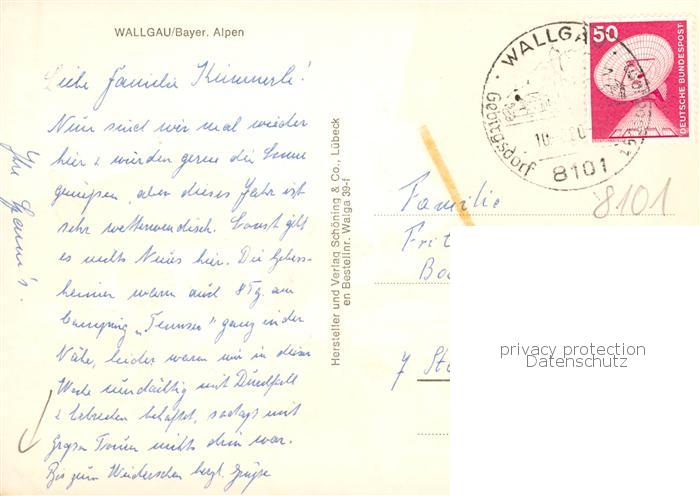 WALLGAU/Bayer. Alpen
Liebe Familie Kümmerle!
Nun sind wir mal wieder
hier & würden gerne die Sonne
genießen, aber dieses Jahr ist
sehr wetterwendisch. Sonst gibt
es nichts Neues hier. Die
waren auch 8 Tg. am
Camping „Tennsee" ganz in der
Nähe, leider waren wir in dieser
Woche mit Durchfall
& behaftet, sodaß mit
großen Touren nichts drin war.
Bis zum Wiedersehen herzl. Grüße
Ihre
Hersteller und Verlag Schöning & Co., Lübeck
en Bestellnr. Walga 39-f
WALLGAU
Gebirgsdorf
8101
50
DEUTSCHE BUNDESPOST
8101
Familie
Frit
7 St
privacy protection
Datenschutz